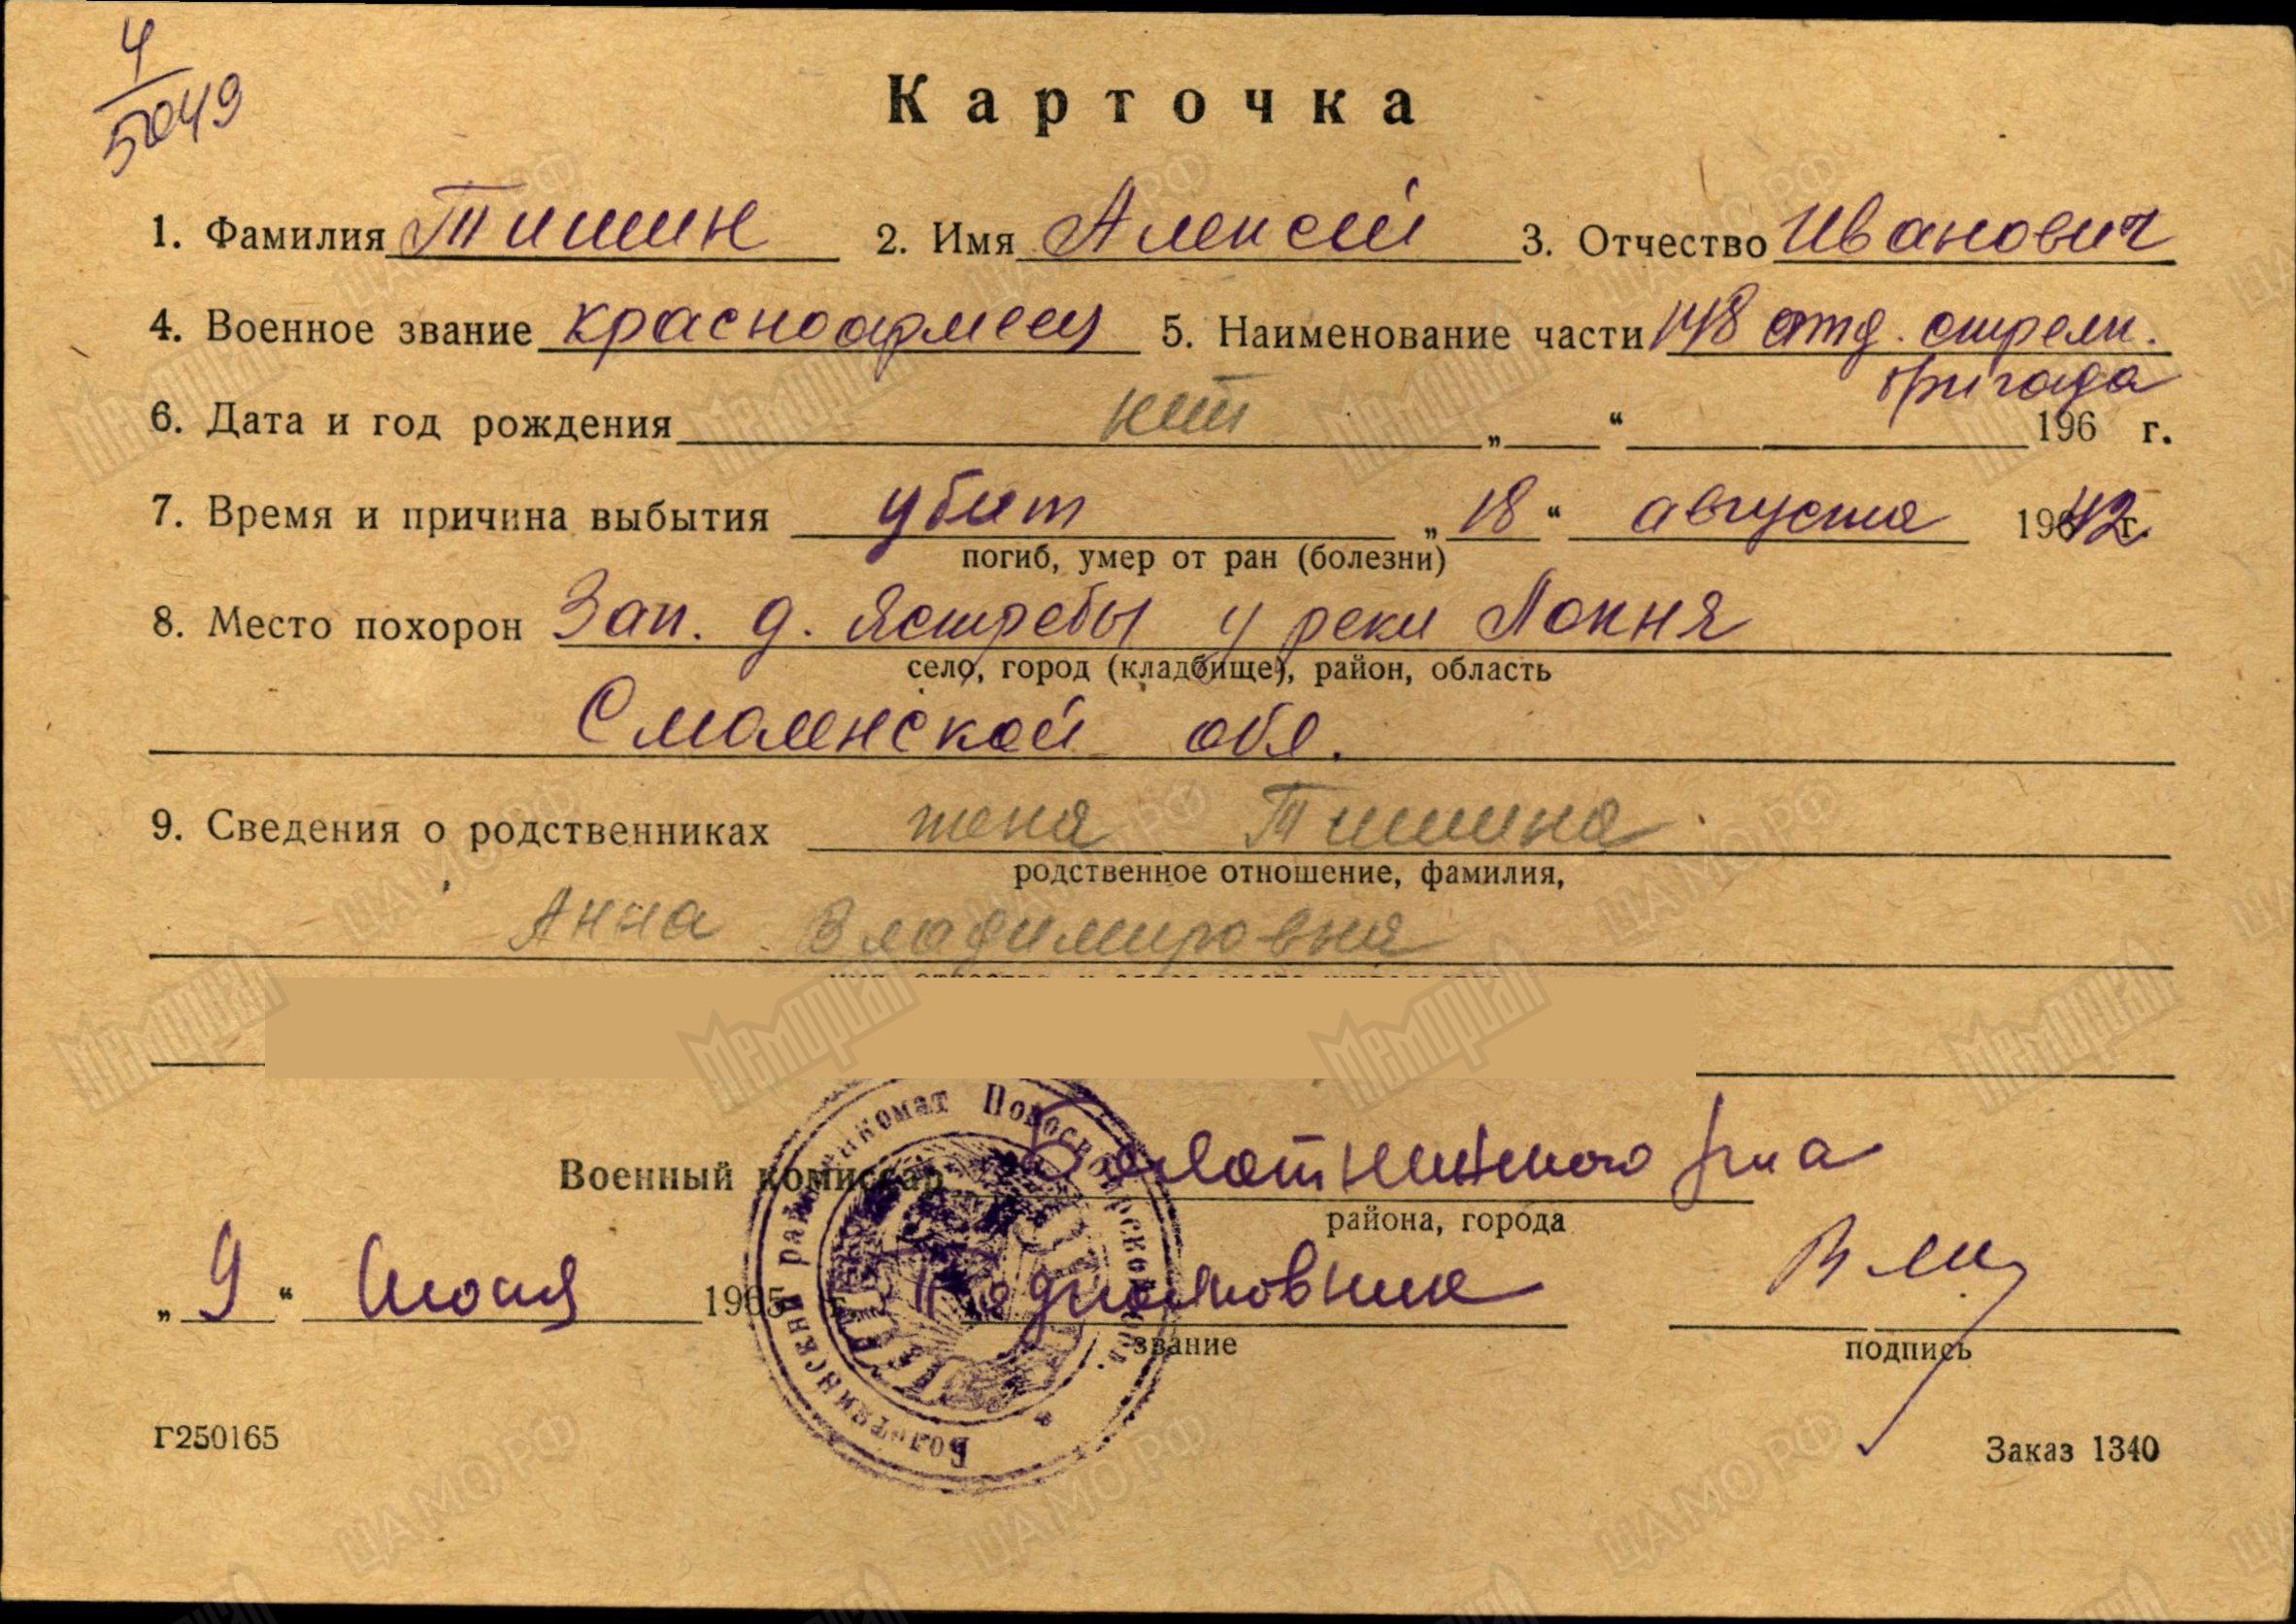 4
5049
Карточка
1. Фамилия Тишин 2. Имя Алексей 3. Отчество Иванович
4. Военное звание красноармеец 5. Наименование части 148 отд. стрелк.
бригада
6. Дата и год рождения нет „ “ 196 г.
7. Время и причина выбытия убит „18“ августа 1942 г.
погиб, умер от ран (болезни)
8. Место похорон Зап. д. Ястребы у реки Локня
село, город (кладбище), район, область
Смоленской обл.
9. Сведения о родственниках жена Тишина
родственное отношение, фамилия,
Анна Владимировна
Военный комиссар Болотнинского р-на
района, города
„9“ Июня 1965 г. Подполковник
звание
подпись
Болотнинский райвоенкомат Новосибирской обл.
Г250165
Заказ 1340
Мемориал
ЦАМО РФ